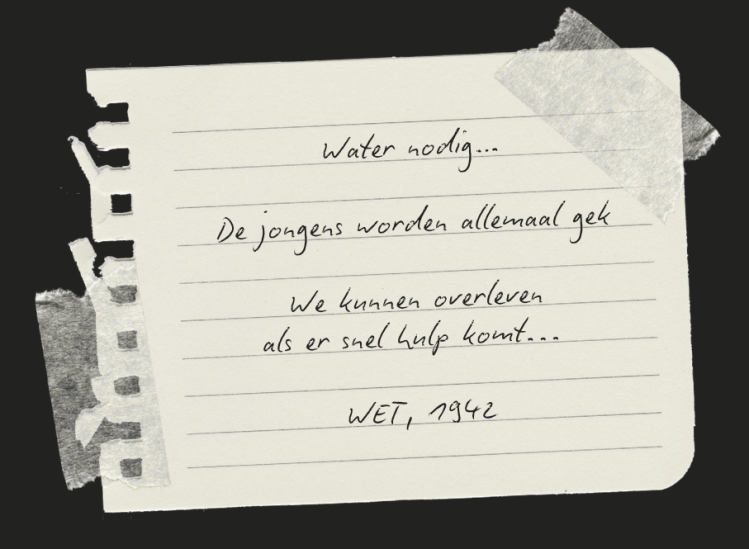 Water nodig...
De jongens worden allemaal gek
We kunnen overleven
als er snel hulp komt...
WET, 1942